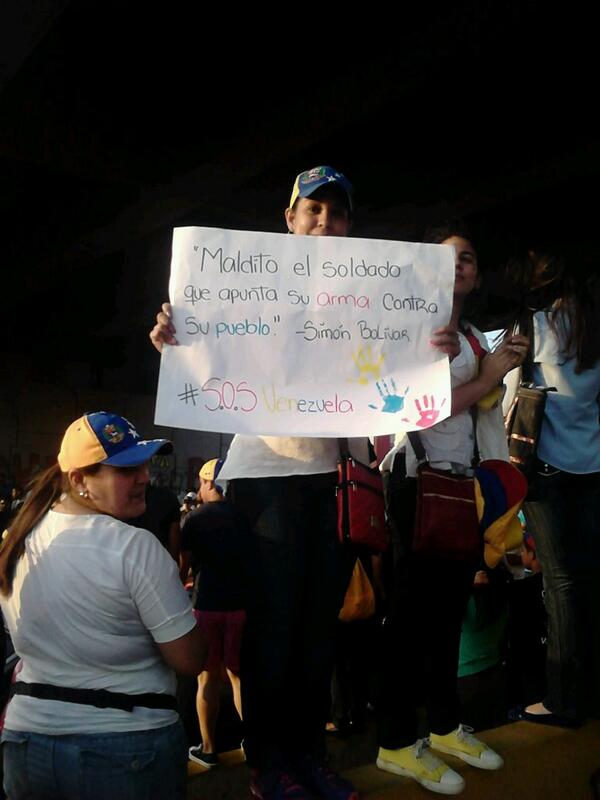 "Maldito el soldado
que apunta su arma contra
su pueblo." -Simón Bolívar
#S.O.S Venezuela